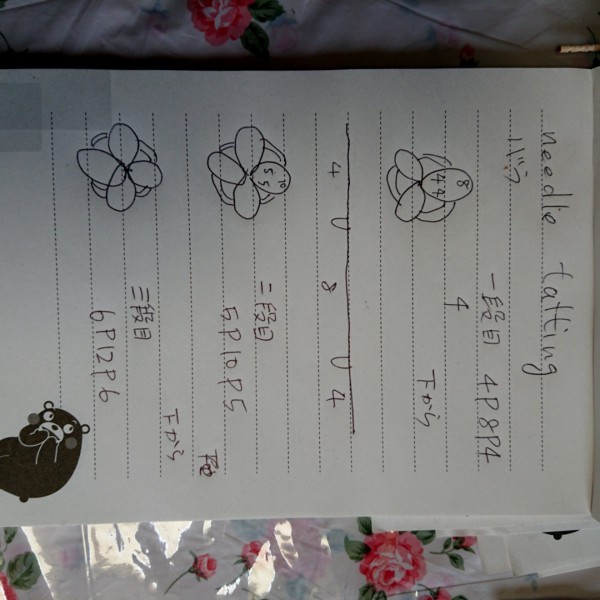 needle tatting
バラ
一段目 4P8P4
4
8
4 4
下から
4 8 4
二段目
5P10P5
10
5 5
下から
三段目
6P12P6